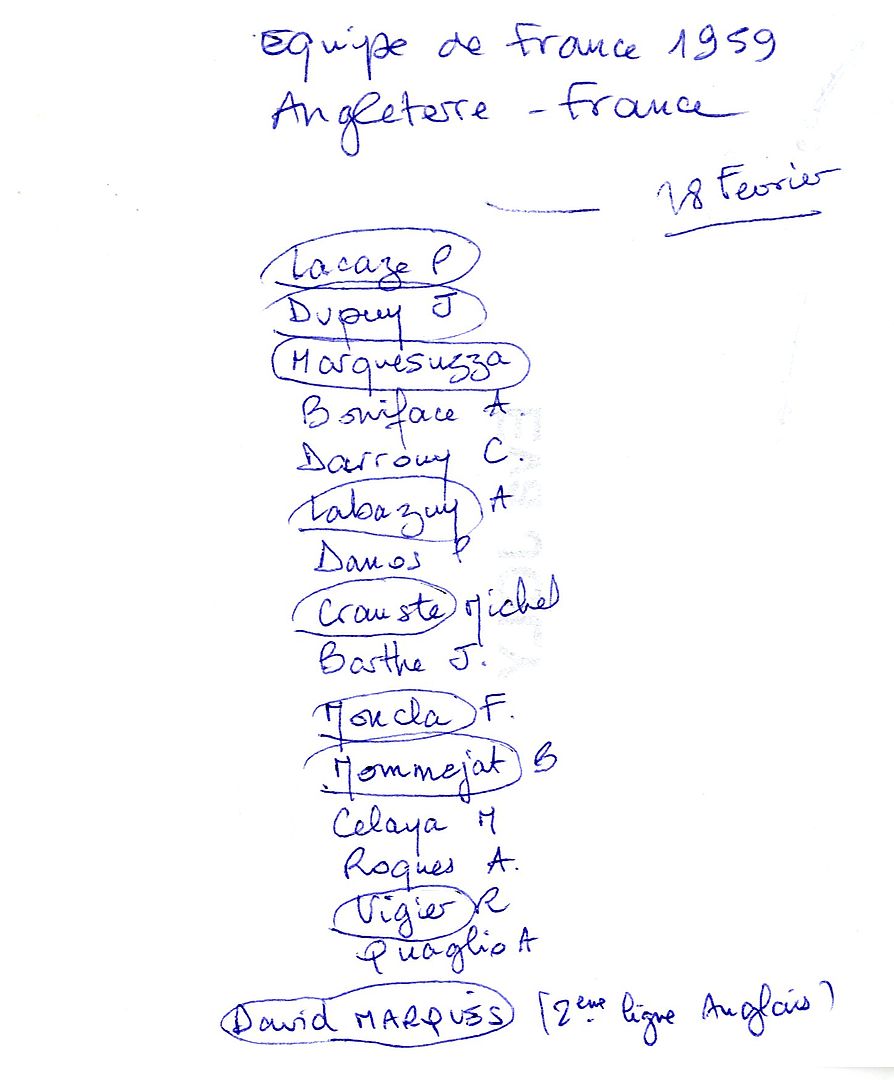 Equipe de France 1959
Angleterre - France
28 Fevrier
Lacaze P
Dupuy J
Marquesuzza
Boniface A.
Darrouy C.
Labazuy A
Danos P
Crauste Michel
Barthe J.
Moncla F.
Mommejat B
Celaya M
Roques A.
Vigier R
Quaglio A
David MARQUÈS (2eme ligne Anglais)